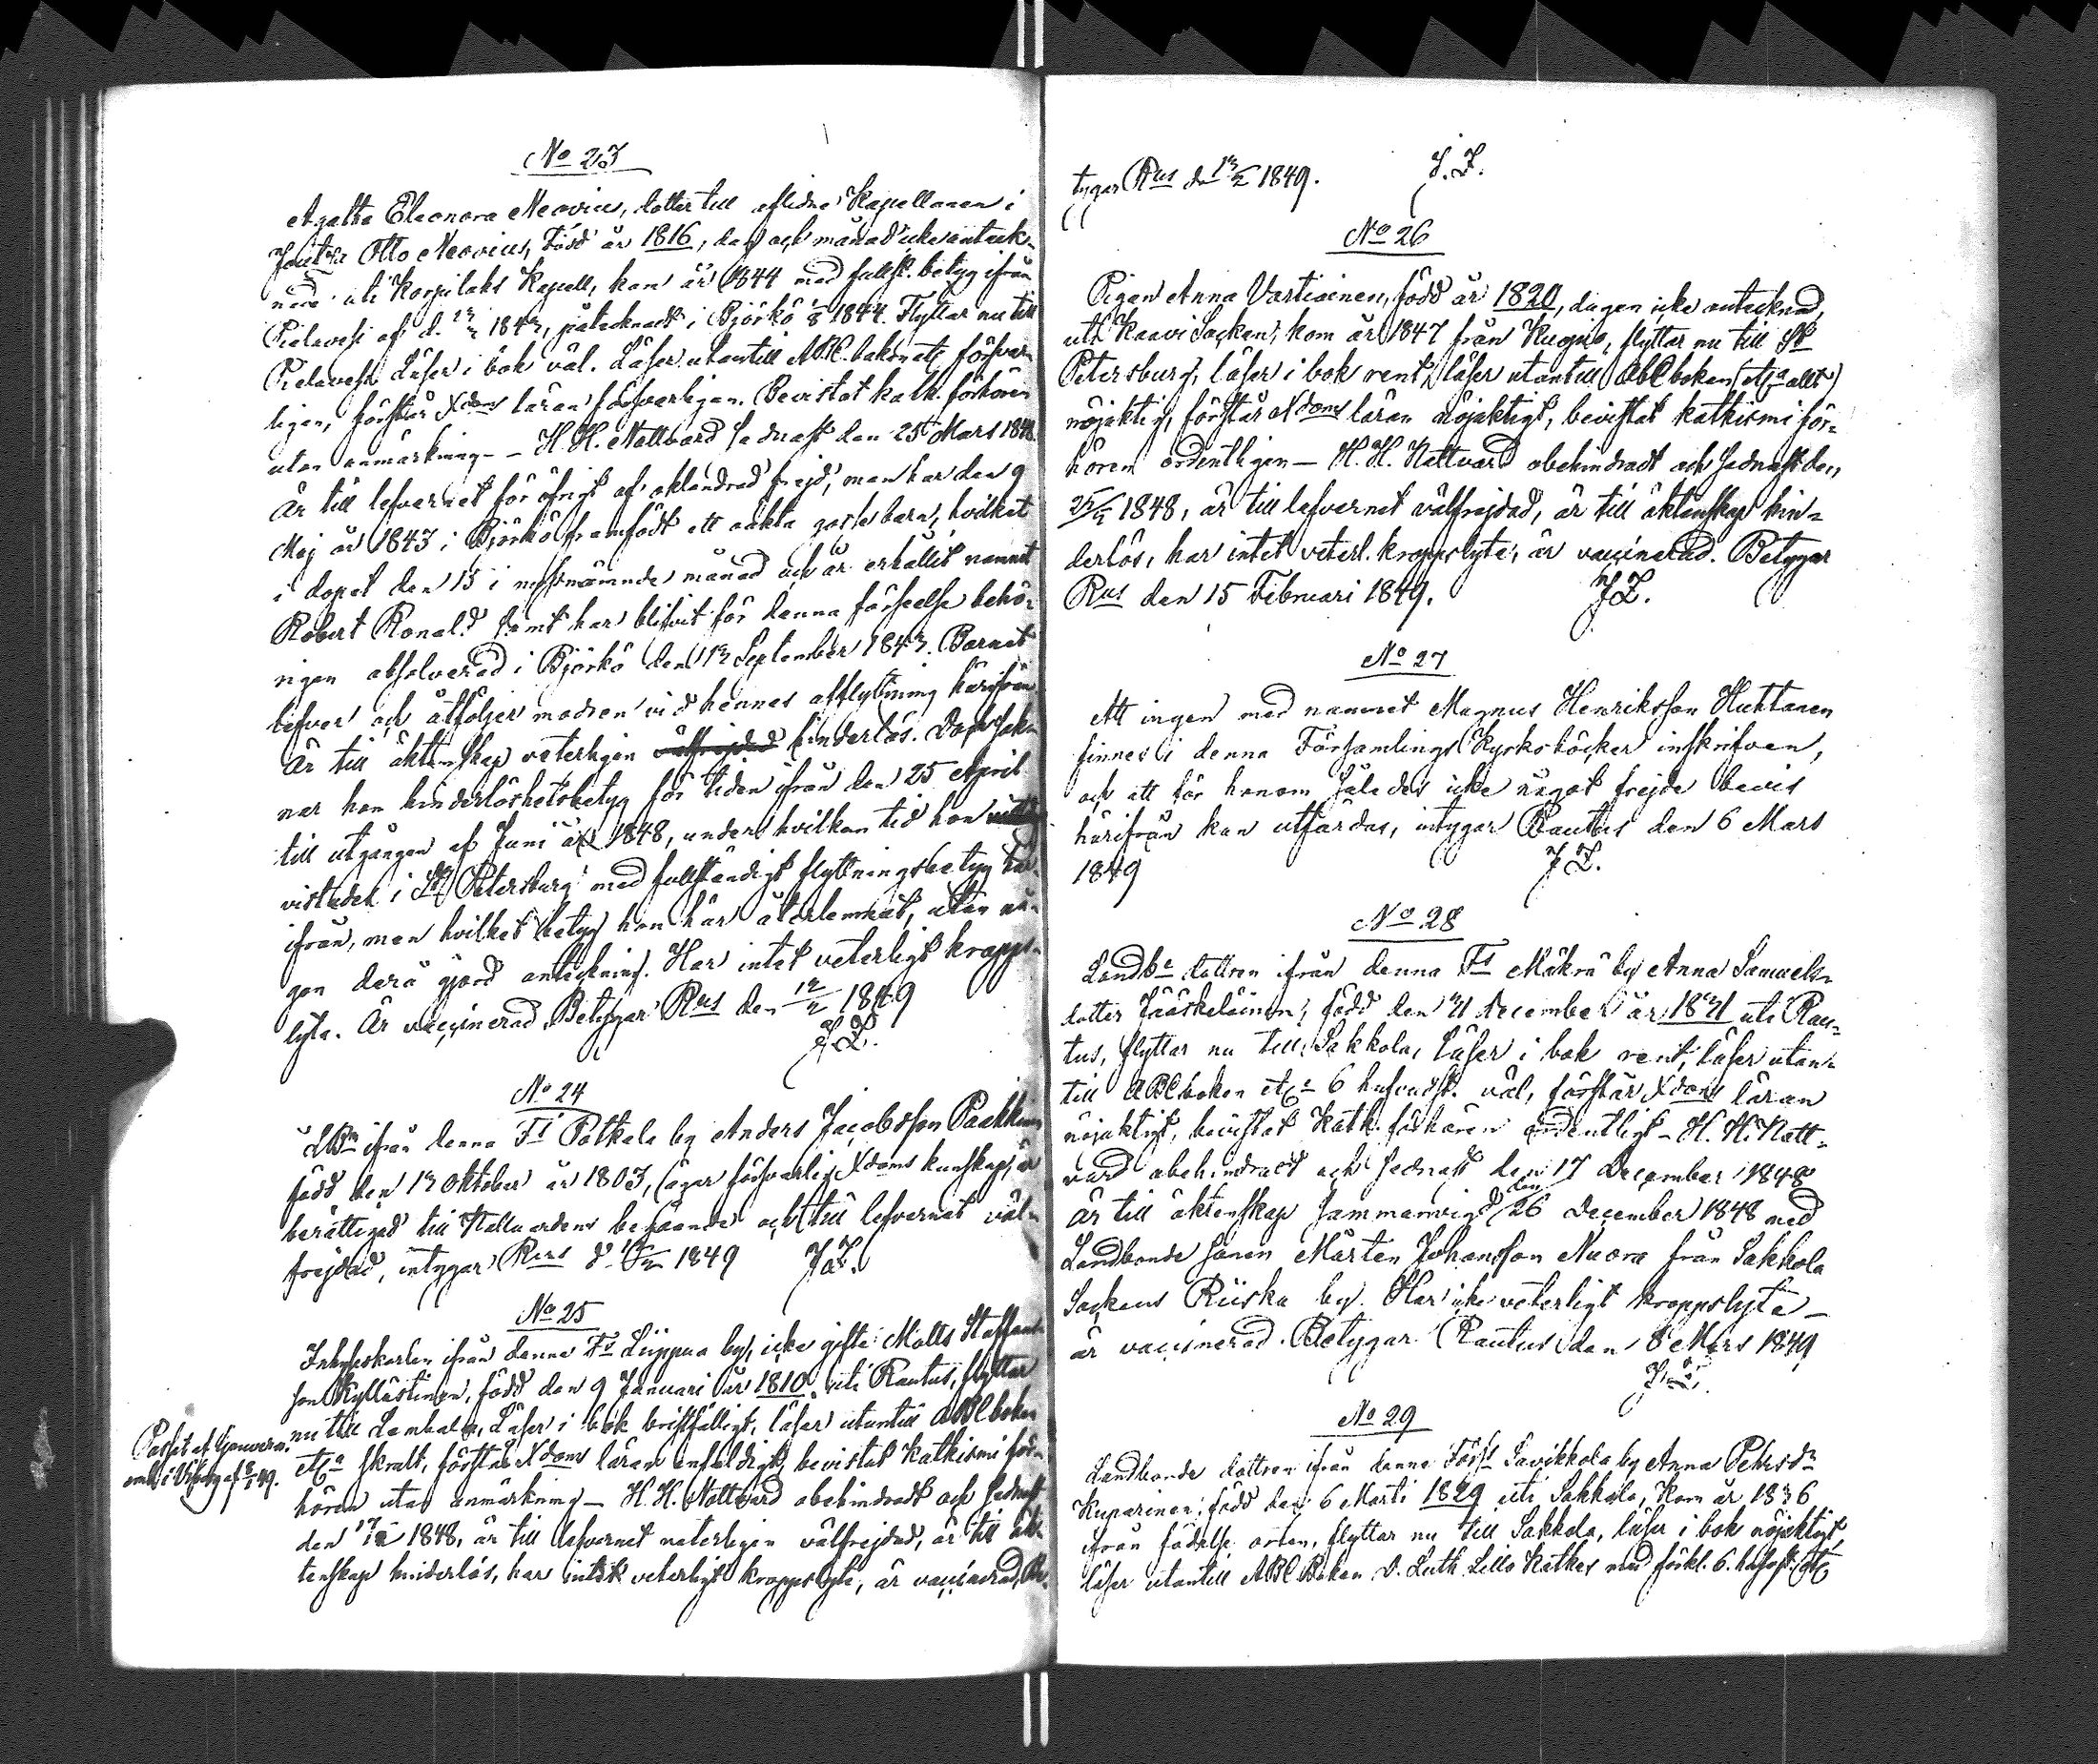 No 23
Agatha Eleonora Neovius, dotter till aflidne Kapellanen i
Joutsa Otto Neovius, född år 1816, dag och månad icke anteck-
nade uti Korpilaks Kapell, kom år 1844 med fullst. betyg ifrån
Pielavesi af d. 1843, påtecknadt i Björkö 1844. Flyttar nu till
Pielavesi. Läser i bok väl. Läser utantill ABC boken etc försvar-
ligen, förstår Xdoms läran försvarligen. Bevistat katk. förhören
utan anmärkning - H. H. Nattvard sednast den 25 Mars 1848.
Är till lefvernet för öfrigt af oklandrad frejd, men har den 9
Maj år 1843 i Björkö framfödt ett oäkta gossebarn, hvilket
i dopet den 15 i nästnämnde månad och år erhållit namnet
Robert Ronald samt har blifvit för denna förseelse behö-
rigen absolverad i Björkö den 13 September 1843. Barnet
lefver och åtföljer modren vid hennes afflyttning härifrån
Är till äktenskap veterligen välfrejdad hinderlös. Dock sak-
nar hon hinderlöshetsbetyg för tiden ifrån den 25 April
till utgången af Juni år 1848, under hvilken tid hon
vistades i St Petersburg med fullständigt flyttningsbetyg här-
ifrån, men hvilket betyg hon här återlemnat, utan nå-
gon derå gjord anteckning. Har intet veterligt kropps-
lyte. Är vaccinerad. Betygar Rus den 12/2 1849
J. L.
No 24
LBn ifrån denna Fs Potkela by Anders Jacobsson Paakkinen
född den 13 Oktober år 1803, äger försvarlig Xdoms kunskap, är
berättigad till Nattvardens begående och till lefvernet väl-
frejdad, intygar Rus d. 1849 J. L.
No 25
Inhyseskarlen ifrån denna Fs Liippua by, icke gifte Matts Staffans-
son Kyllästinen, född den 9 Januari år 1810 uti Rautus, flyttar
nu till Lembala, Läser i bok bristfälligt, läser utantill ABC boken
etc skralt, förstår Xdoms läran enfaldigt, bevistat Katkismi för-
hören utan anmärkning - H. H. Nattvard obehindradt och sednast
den 1848, är till lefvernet veterligen välfrejdad, är till äk-
tenskap hinderlös, har intet veterligt kroppslyte, är vaccinerad, Be-
Passet af Gouvern.
emb. i Viborg af 49.
tygar Rus den 1849. J. L.
No 26
Pigan Anna Vartiainen, född år 1820, dagen icke antecknad,
uti Kaavi Socken, kom år 1847 från Kuopio, flyttar nu till St
Petersburg, läser i bok rent, läser utantill ABC boken (etc allt)
nöjaktig, förstår Xdoms läran nöjaktigt, bevistat katkismi för-
hören ordentligen - H. H. Nattvard obehindradt och sednast den
1848, är till lefvernet välfrejdad, är till äktenskap hin-
derlös, har intet veterl. kroppslyte, är vaccinerad. Betygar
Rus den 15 Februari 1849. J. L.
No 27
Att ingen med namnet Magnus Henriksson Huhtanen
finnes i denna Församlings Kyrkoböcker inskrifven,
och att för honom således icke något frejde bevis
härifrån kan utfärdas, intygar Rautus den 6 Mars
1849 J. L.
No 28
Landbe dottren ifrån denna Fs Mäkrä by Anna Samuels-
dotter Jääskeläinen, född den 31 December år 1831 uti Rau-
tus, flyttar nu till Sakkola, Läser i bok rent, läser utan-
till ABC boken etc 6 hufvudst. väl, förstår Xdoms läran
nöjaktigt, bevistat Katk. förhören ordentligt - H. H. Natt-
vard obehindradt och sednast den 17 December 1848
är till äktenskap sammanvigd den 26 December 1848 med
Landbonde sonen Mårten Johansson Nuora från Sakkola
Sockens Riiska by. Har icke veterligt kroppslyte -
är vaccinerad. Betygar Rautus den 8 Mars 1849
J. L.
No 29
Landbonde dottren ifrån denne Förs Savikkola by Anna Pehrsdr
Kuparinen, född den 6 Marti 1829 uti Sakkola, Kom år 1836
ifrån födelse orten, flyttar nu till Sakkola, läser i bok nöjaktigt,
läser utantill ABC Boken D. Luth. Lilla Katkes med förkl. 6. hufvst. etc